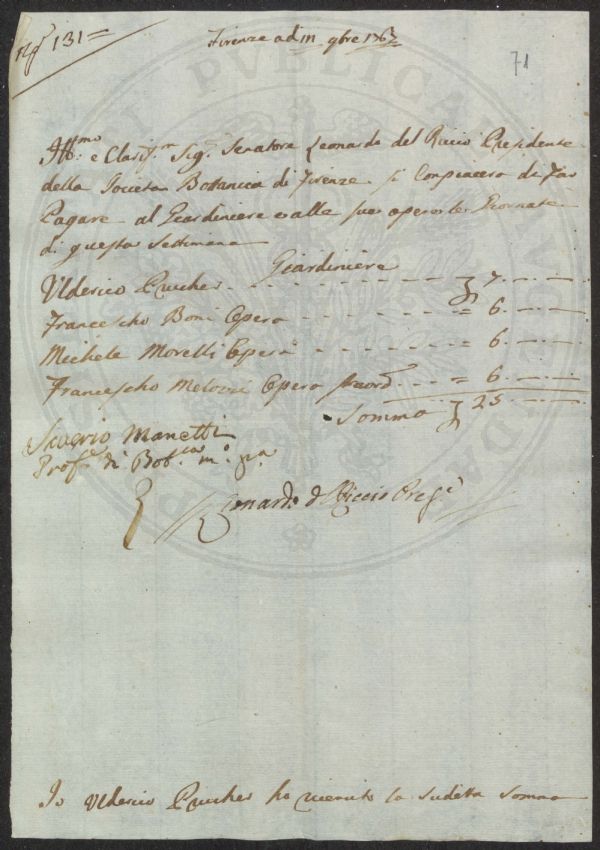 N.º 131=
Firenze ad 9bre 1767
71
Ill:mo e Clariss.mo Sig.r Senatore Leonardo del Riccio Presidente
della Società Botanica di Firenze si Conpiacera di Far
Pagare al Giardiniere e alle sue opere le Giornate
di questa Settimana
Giardiniere
Ulderico Prucher - - - - - - } 7. - -
Francescho Boni Opera - - - - = 6. - -
Michele Morelli Opera - - - - - 6. - -
Francescho Melozzi Opera - - - = 6. - -
Somma } 25 - -
Saverio Manetti
Prof.re di Bot.ca m.o pa.
Leonard.o d Riccio Pres.e
Io Ulderico Prucher ho ricevuto la sudetta somma